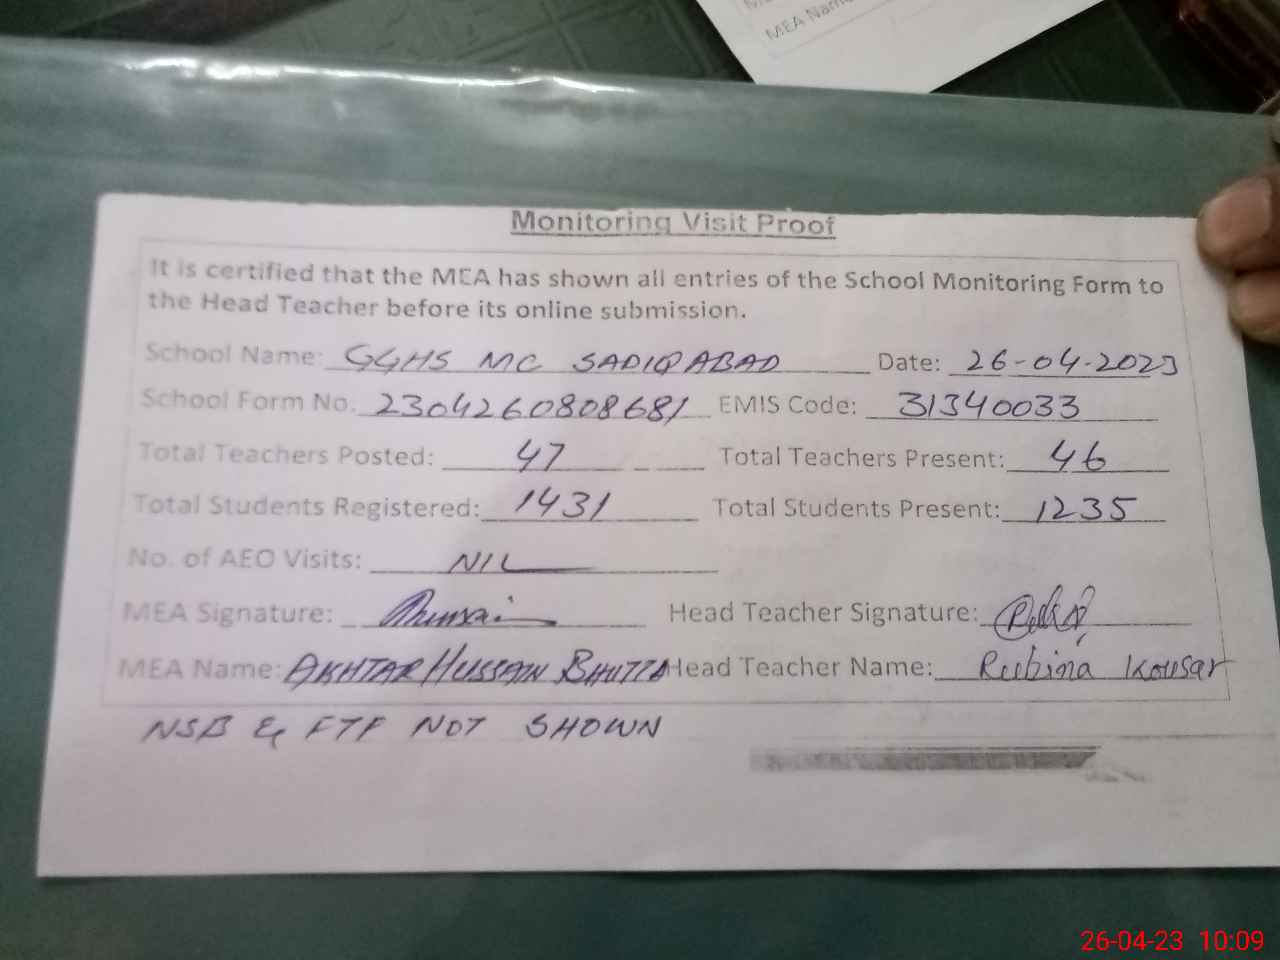 MEA Name
Monitoring Visit Proof
It is certified that the MEA has shown all entries of the School Monitoring Form to
the Head Teacher before its online submission.
School Name: GGHS MC SADIQABAD Date: 26-04-2023
School Form No. 2304260808681 EMIS Code: 31340033
Total Teachers Posted: 47 Total Teachers Present: 46
Total Students Registered: 1431 Total Students Present: 1235
No. of AEO Visits: NIL
MEA Signature: Head Teacher Signature:
MEA Name: AKHTAR HUSSAIN BHUTTA Head Teacher Name: Rubina Kousar
NSB & FTF NOT SHOWN
26-04-23 10:09